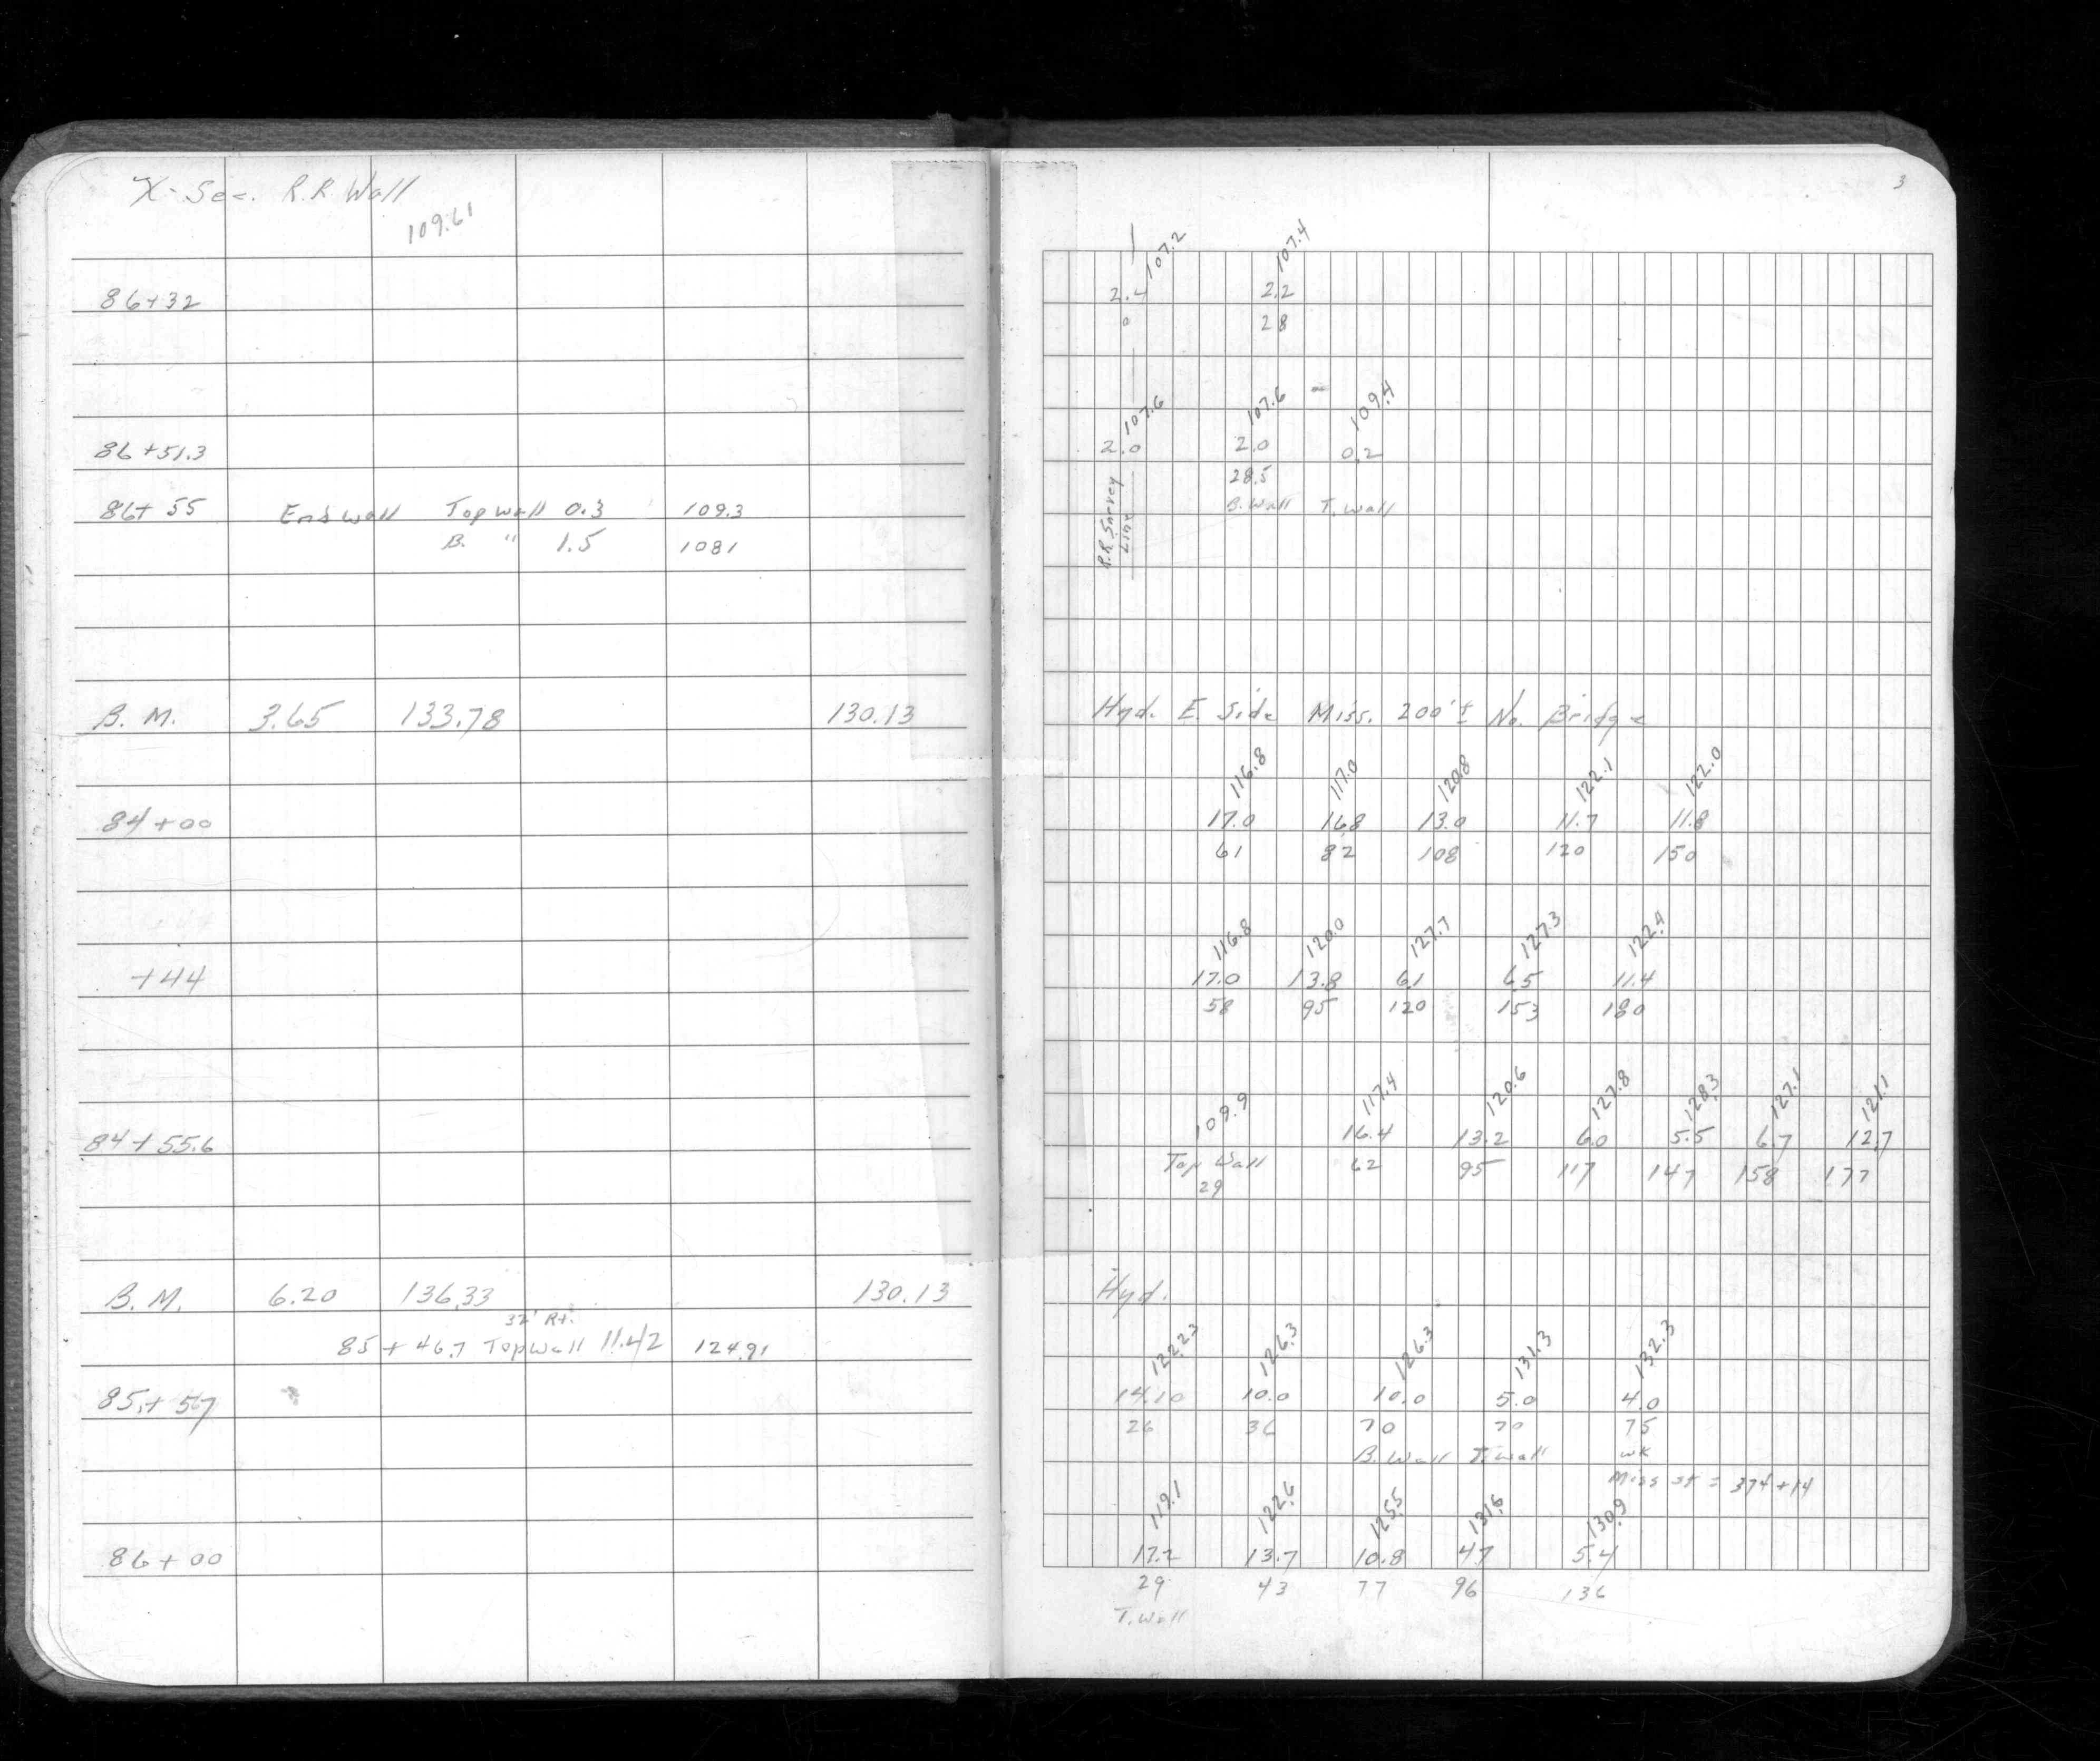 X-Sec. R.R. Wall
109.61
86+32
86+51.3
86+55 End wall Top wall 0.3 109.3
B. " 1.5 108.1
B.M. 3.65 133.78 130.13
84+00
+44
84+55.6
B.M. 6.20 136.33 130.13
32' Rt.
85+46.7 Top Wall 11.42 124.91
85+57
86+00
3
107.2 107.4
2.4 2.2
0 28
107.6 107.6 109.4
2.0 2.0 0.2
28.5
B. Wall T. Wall
R.R. Survey
Line
Hyd. E. Side Miss. 200'± No. Bridge
116.8 117.0 120.8 122.1 122.0
17.0 16.8 13.0 11.7 11.8
61 82 108 120 150
116.8 120.0 127.7 127.3 122.4
17.0 13.8 6.1 6.5 11.4
58 95 120 153 180
109.9 117.4 120.6 127.8 128.3 127.1 121.1
16.4 13.2 6.0 5.5 6.7 12.7
Top Wall 62 95 117 147 158 177
29
Hyd.
122.23 126.3 126.3 131.3 132.3
14.10 10.0 10.0 5.0 4.0
26 36 70 70 75
B. Wall T. Wall wk
Miss st = 374+14
119.1 122.6 125.5 131.6 130.9
17.2 13.7 10.8 4.7 5.4
29 43 77 96 136
T. Wall